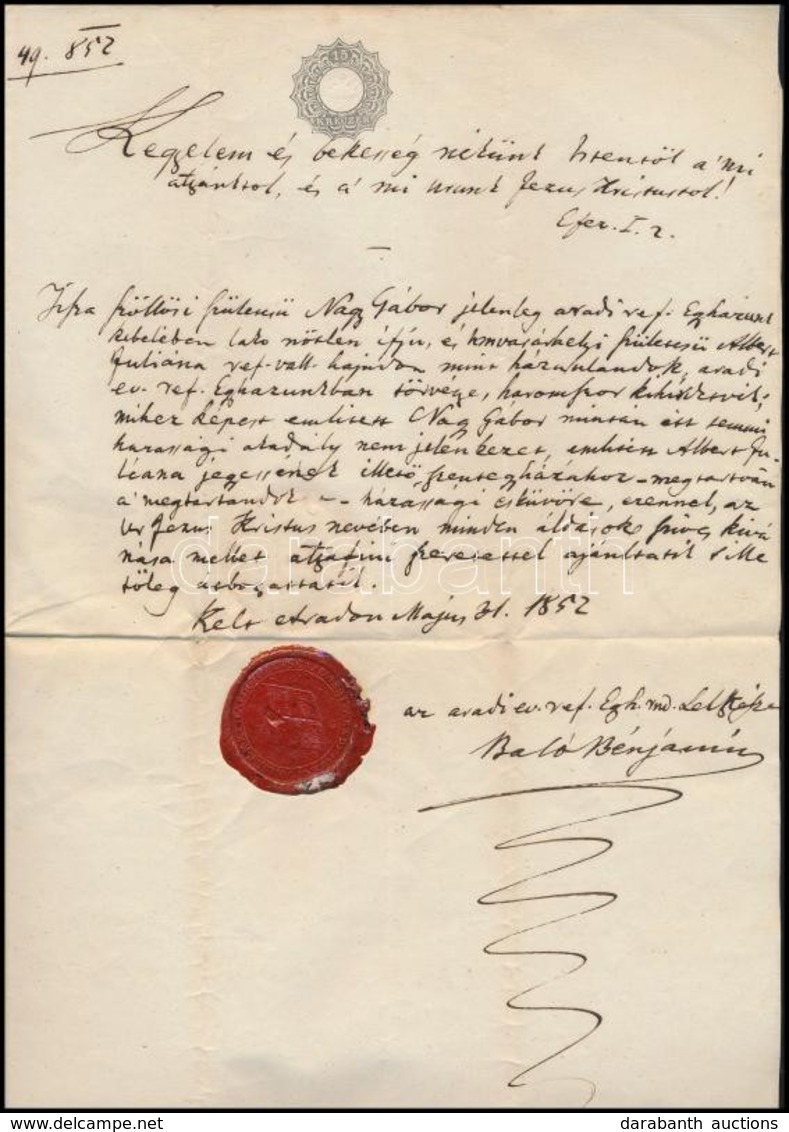 49. 852
15
KREUZER
Kegyelem és bekesség nékünk Istentöl a' mi
atyánktol, és a' mi urunk Jezus Kristustol!
Efez. I. 2.
Ifra szöllösi születésü Nagy Gábor jelenleg aradi ref. Egyházunk
kebelében lako nötlen ifju, és hmvasárhelyi születésü Albert
Juliána ref. vall. hajadon mint házasulandok, aradi
ev. ref. Egyhazunkban törvége, haromszor kihirdetvék;
mihez képest emlitett Nagy Gábor mintán itt semmi
hazassági akadály nem jelenkezet, emlitett Albert Ju-
liana jegessének illető szentegyházához - megtartván
a' megtartandok - házassági esküvöre, ezennel, az
Ur Jezus Kristus nevében minden áldások szives kivá
nása mellet atyafiui szeretettel ajánltatik
töleg utbocattatik.
Kelt Aradon Május 31. 1852
az aradi ev. ref. Egyh. md. Lelkésze
Baló Bénjamin
darabanth
darabanth auctions
www.delcampe.net